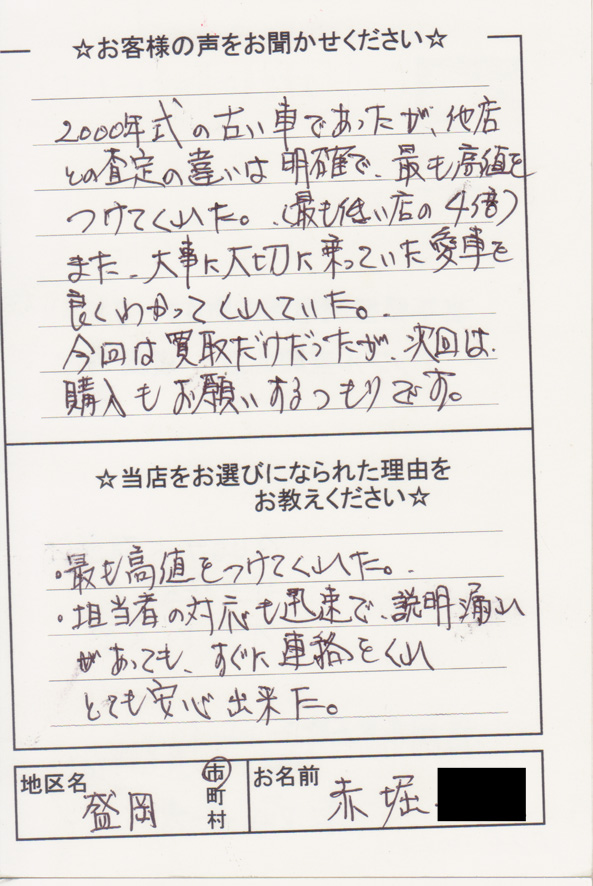 ☆お客様の声をお聞かせください☆
2000年式の古い車であったが、他店
との査定の違いは明確で、最も高値を
つけてくれた。(最も低い店の4倍)
また、大事に大切に乗っていた愛車を
良くわかってくれていた。
今回は買取だけだったが、次回は、
購入もお願いするつもりです。
☆当店をお選びになられた理由を
お教えください☆
・最も高値をつけてくれた。
・担当者の対応も迅速で、説明漏れ
があっても、すぐに連絡をくれ
とても安心出来た。
地区名 盛岡 市町村
お名前 赤堀